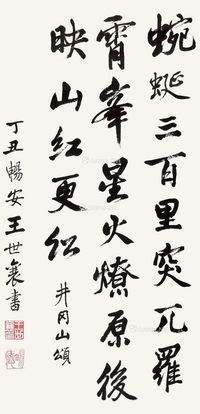 蜿蜒三百里突兀羅
霄峯星火燎原後
映山紅更紅
井冈山頌
丁丑暢安王世襄書